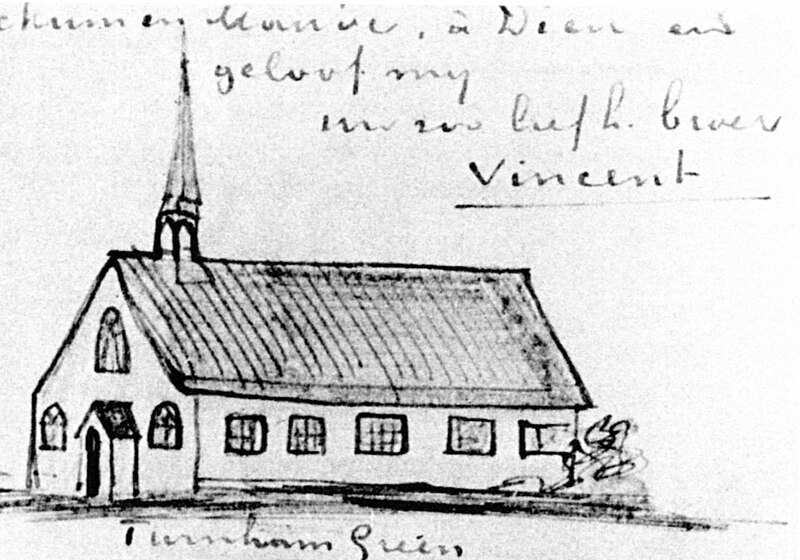 en Mauve, à Dieu en
geloof my
uw zoo liefh. broer
Vincent
Turnham Green